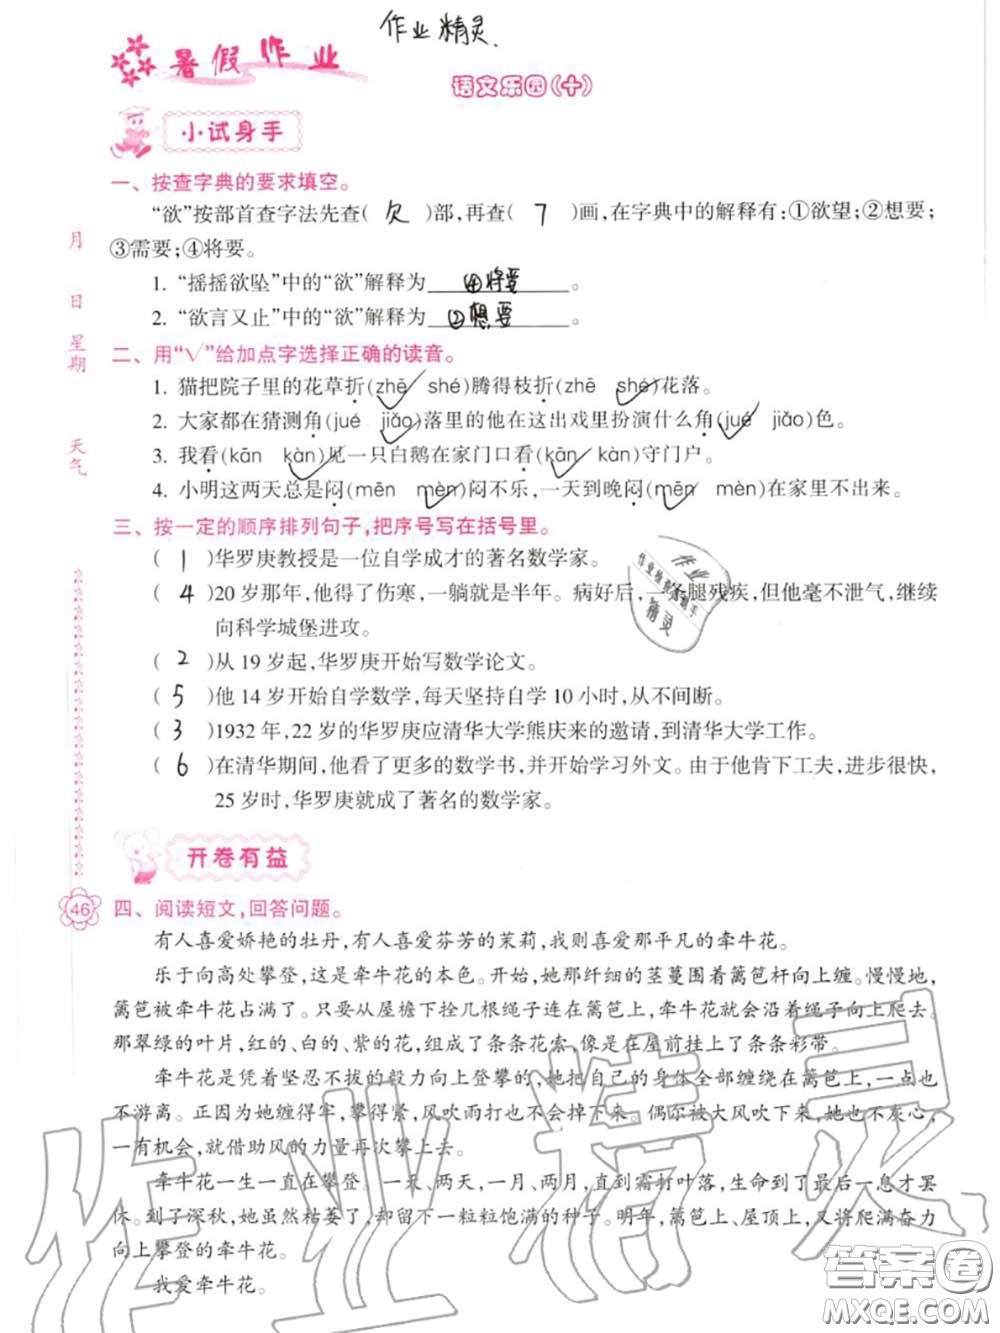 作业精灵.
暑假作业
语文乐园(十)
小试身手
一、按查字典的要求填空。
“欲”按部首查字法先查( 欠 )部,再查( 7 )画,在字典中的解释有:①欲望;②想要;
③需要;④将要。
1. “摇摇欲坠”中的“欲”解释为 ④将要 。
2. “欲言又止”中的“欲”解释为 ②想要 。
二、用“√”给加点字选择正确的读音。
1. 猫把院子里的花草折(zhē shé✓)腾得枝折(zhē shé✓)花落。
2. 大家都在猜测角(jué jiǎo✓)落里的他在这出戏里扮演什么角(jué✓ jiǎo)色。
3. 我看(kān kàn✓)见一只白鹅在家门口看(kān✓ kàn)守门户。
4. 小明这两天总是闷(mēn mèn✓)闷不乐,一天到晚闷(mēn✓ mèn)在家里不出来。
三、按一定的顺序排列句子,把序号写在括号里。
( 1 )华罗庚教授是一位自学成才的著名数学家。
( 4 )20 岁那年,他得了伤寒,一躺就是半年。病好后,一条腿残疾,但他毫不泄气,继续
向科学城堡进攻。
( 2 )从 19 岁起,华罗庚开始写数学论文。
( 5 )他 14 岁开始自学数学,每天坚持自学 10 小时,从不间断。
( 3 )1932 年,22 岁的华罗庚应清华大学熊庆来的邀请,到清华大学工作。
( 6 )在清华期间,他看了更多的数学书,并开始学习外文。由于他肯下工夫,进步很快,
25 岁时,华罗庚就成了著名的数学家。
开卷有益
四、阅读短文,回答问题。
有人喜爱娇艳的牡丹,有人喜爱芬芳的茉莉,我则喜爱那平凡的牵牛花。
乐于向高处攀登,这是牵牛花的本色。开始,她那纤细的茎蔓围着篱笆杆向上缠。慢慢地,
篱笆被牵牛花占满了。只要从屋檐下拴几根绳子连在篱笆上,牵牛花就会沿着绳子向上爬。
那翠绿的叶片,红的、白的、紫的花,组成了条条花索,像是在屋前挂上了条条彩带。
牵牛花是凭着坚忍不拔的毅力向上登攀的,她把自己的身体全部缠绕在篱笆上,一点也
不游离。正因为她缠得牢,攀得紧,风吹雨打也不会掉下来。偶尔被大风吹下来,她也不灰心,
一有机会,就借助风的力量再次攀上去。
牵牛花一生一直在攀登。一天、两天,一月、两月,直到霜打叶落,生命到了最后一息才罢
休。到了深秋,她虽然枯萎了,却留下一粒粒饱满的种子。明年,篱笆上、屋顶上,又将爬满奋力
向上攀登的牵牛花。
我爱牵牛花。
月
日
星期
天气
46
作业
精灵
作业精灵
答案圈
MXQE.COM